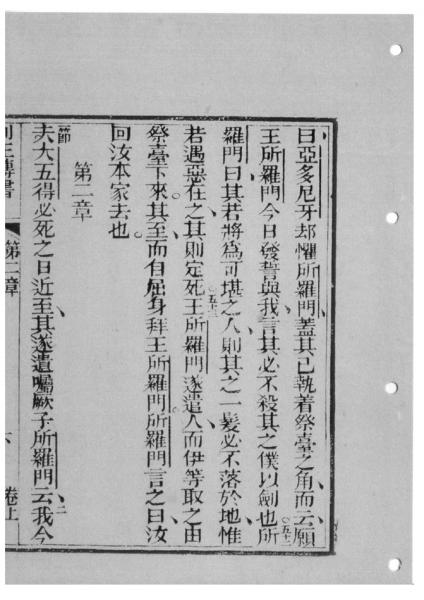 曰亞多尼牙却懼所羅門蓋其已執着祭臺之角而云願
王所羅門今日發誓與我言其必不殺其之僕以劍也所
羅門曰其若將為可堪之人則其之一髮必不落於地惟
若遇惡在之其則定死王所羅門遂遣人而伊等取之由
祭臺下來其至而自屈身拜王所羅門所羅門言之曰汝
回汝本家去也
第二章
節 夫大五得必死之日近至其遂遣囑厥子所羅門云我今
第二章 卷上